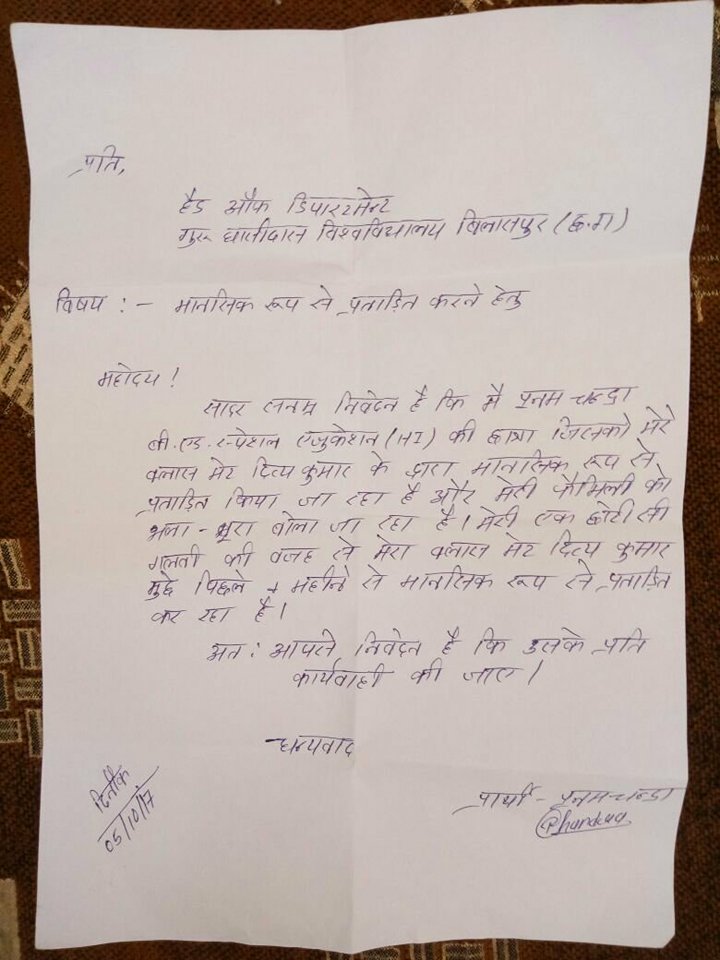 प्रति,
हैड ऑफ डिपारटमेन्ट
गुरू घासीदास विश्वविद्यालय बिलासपुर (छ.ग)
विषय :- मानसिक रूप से प्रताड़ित करने हेतु
महोदय !
सादर सनम्र निवेदन है कि मै पूनम चन्द्रा
बी.एड. स्पेशल एजुकेशन (HI) की छात्रा जिसको मेरे
क्लास मेट दिव्य कुमार के द्वारा मानसिक रूप से
प्रताड़ित किया जा रहा है और मेरी फैमिली को
भला-बूरा बोला जा रहा है। मेरी एक छोटी सी
गलती की वजह से मेरा क्लास मेट दिव्य कुमार
मुझे पिछले महीने से मानसिक रूप से प्रताड़ित
कर रहा है।
अत: आपसे निवेदन है कि उसके प्रति
कार्यवाही की जाए।
धन्यवाद
दिनाँक
05/10/17
प्रार्थी - पूनम चन्द्रा